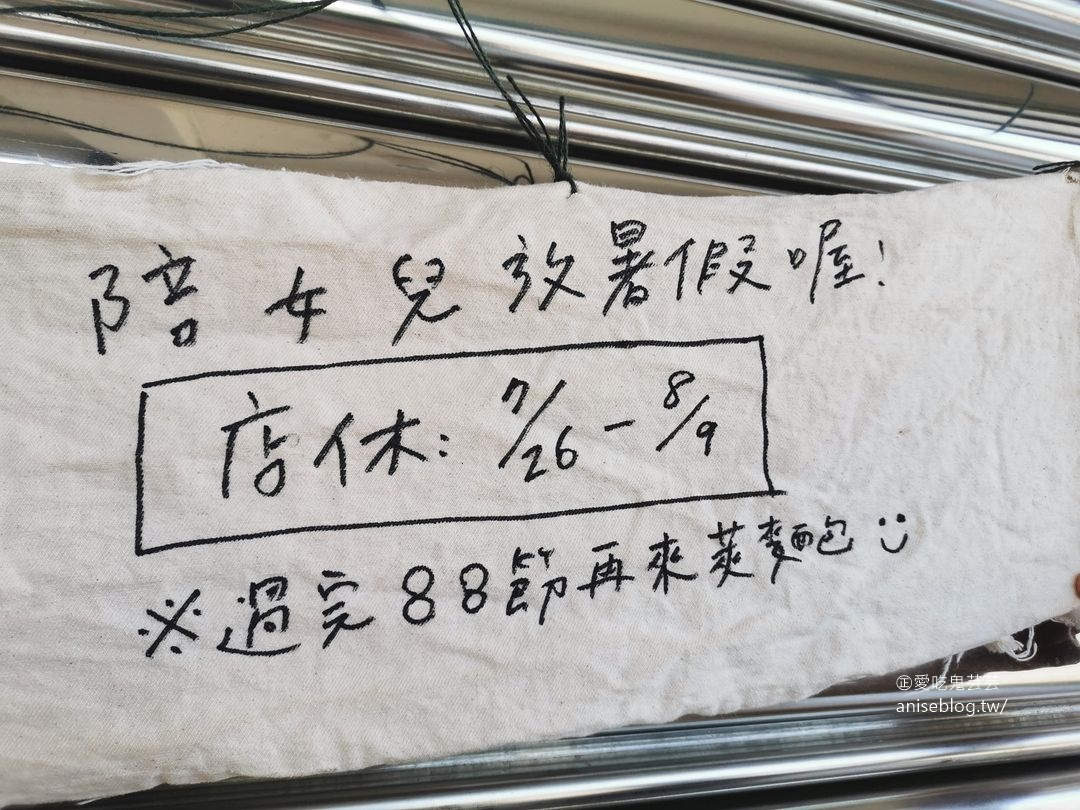 陪女兒放暑假喔!
店休：7/26 - 8/9
※過完88節再來萊麵包 :)
㊣愛吃鬼芸芸
aniseblog.tw/